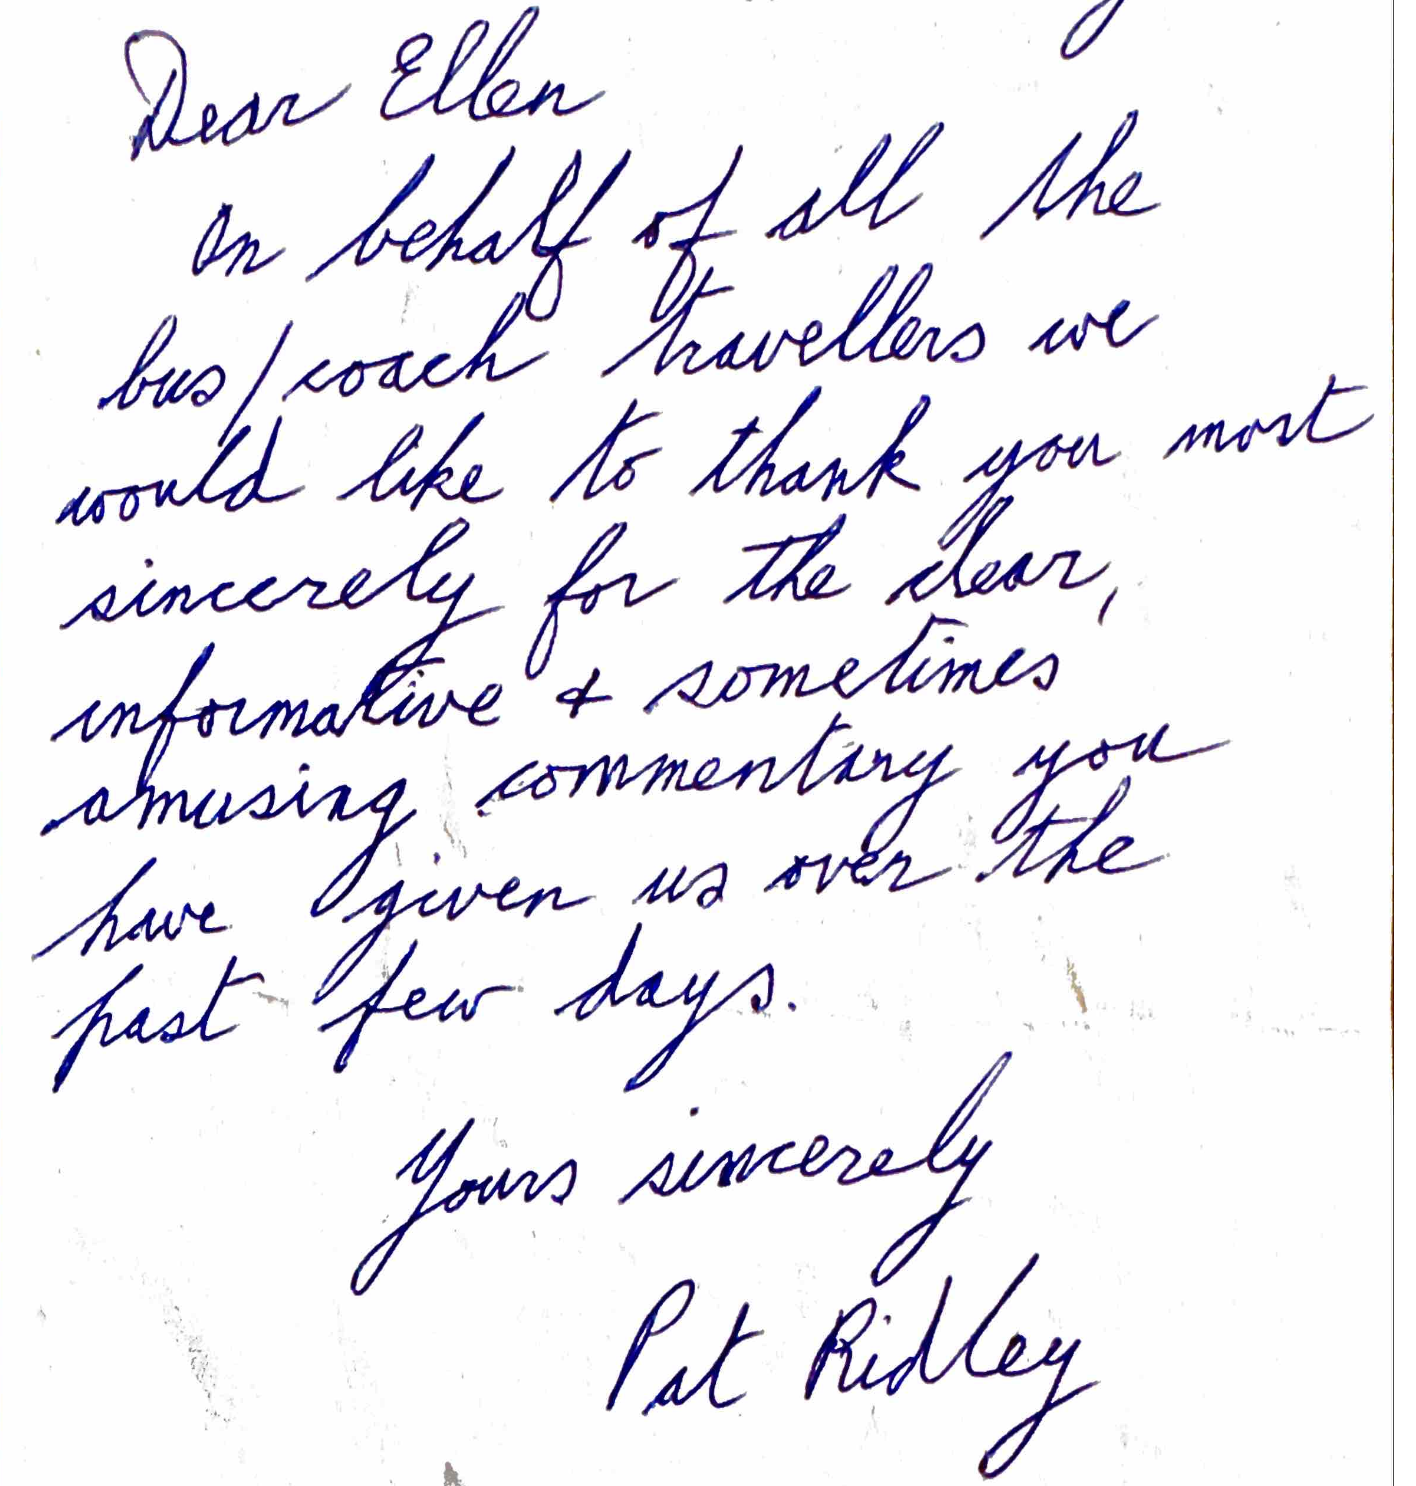 Dear Ellen
On behalf of all the
bus/coach travellers we
would like to thank you most
sincerely for the clear,
informative & sometimes
amusing commentary you
have given us over the
past few days.
Yours sincerely
Pat Ridley